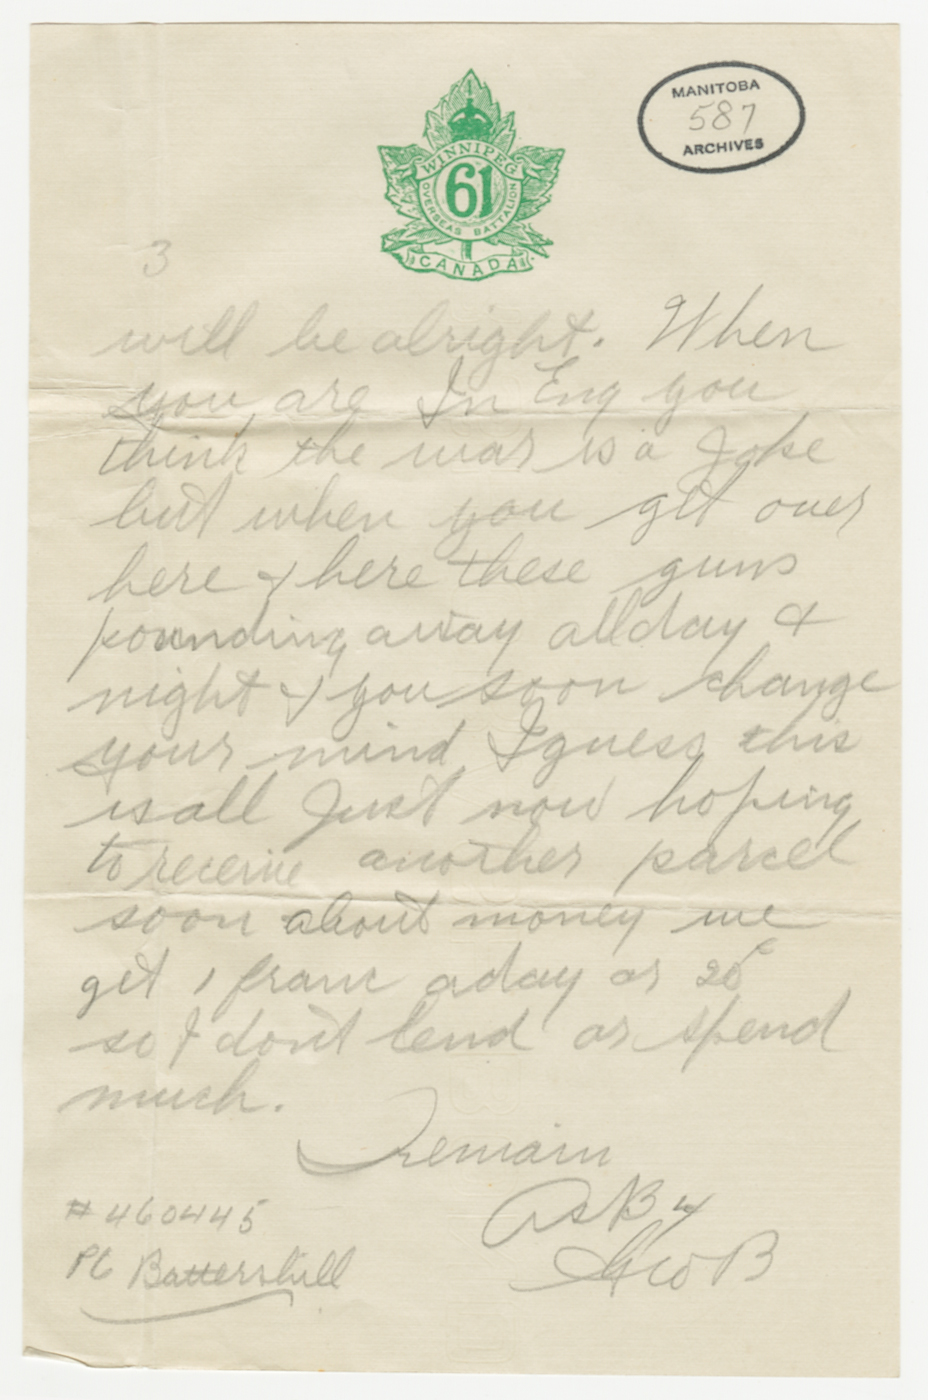 MANITOBA
587
ARCHIVES
WINNIPEG
61
OVERSEAS BATTALION
CANADA
3
will be alright. When
you are In Eng you
think the war is a Joke
but when you get over
here & here these guns
pounding away all day &
night & you soon change
your mind I guess this
is all Just now hoping
to receive another parcel
soon about money we
get 1 franc a day or 20c
so I don't lend or spend
much.
I remain
As B 4
Geo B
# 460445
Pt Battershill